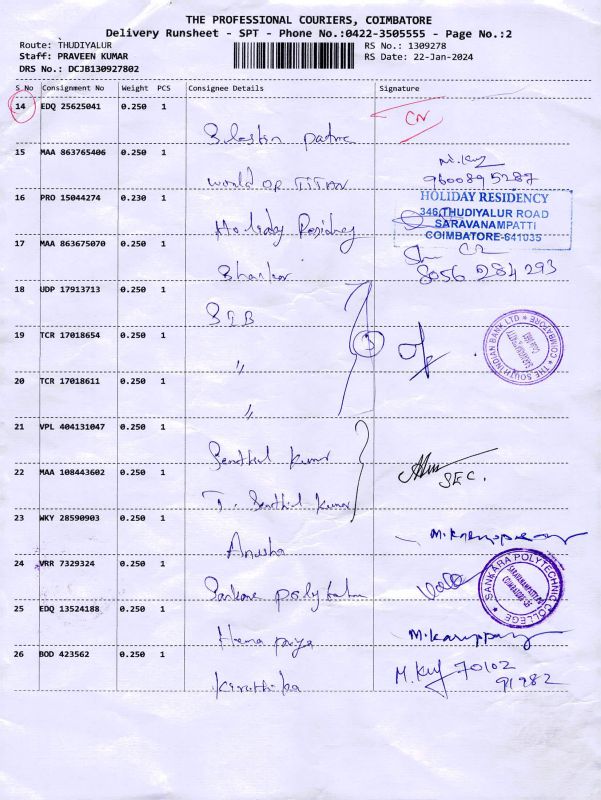 THE PROFESSIONAL COURIERS, COIMBATORE
Delivery Runsheet - SPT - Phone No.:0422-3505555 - Page No.:2
Route: THUDIYALUR
RS No.: 1309278
Staff: PRAVEEN KUMAR
RS Date: 22-Jan-2024
DRS No.: DCJB130927802
S No Consignment No Weight PCS Consignee Details Signature
14 EDQ 25625041 0.250 1
CN
15 MAA 863765406 0.250 1
World OF TITAN
9600895287
16 PRO 15044274 0.230 1
Holiday Residney
HOLIDAY RESIDENCY
346,THUDIYALUR ROAD
SARAVANAMPATTI
COIMBATORE-641035
17 MAA 863675070 0.250 1
Bhaskar
8056 284 293
18 UDP 17913713 0.250 1
SIB
3
19 TCR 17018654 0.250 1
"
THE SOUTH INDIAN BANK LTD * COIMBATORE *
20 TCR 17018611 0.250 1
"
21 VPL 404131047 0.250 1
Senthil Kumar
22 MAA 108443602 0.250 1
SEC.
T. Senthil Kumar
23 WKY 28590903 0.250 1
Anusha
24 VRR 7329324 0.250 1
Sankara
SANKARA POLYTECHNIC COLLEGE
SARAVANAMPATTI
COIMBATORE-35
25 EDQ 13524188 0.250 1
Hema priya
M. Karuppa
26 BOD 423562 0.250 1
Kiruthika
70102
91982